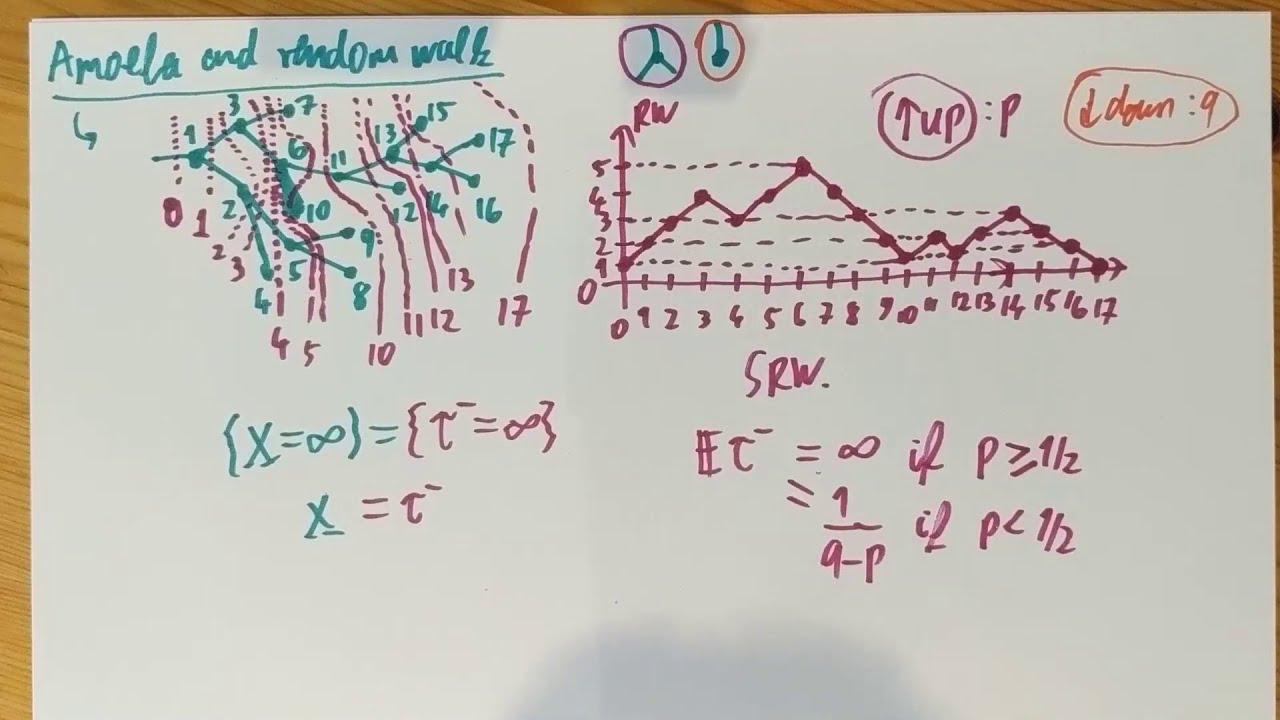 Amoeba and random walk
↑up : p
↓down : q
3 7 15
1 6 11 13 17
2 10 12 14 16
9
5
4 8
0 1 2 3 4 5 10 11 12 13 17
RW
5
4
3
2
1
0
0 1 2 3 4 5 6 7 8 9 10 11 12 13 14 15 16 17
SRW.
{X=∞} = {τ⁻=∞}
X = τ⁻
𝔼τ⁻ = ∞ if p ≥ 1/2
= 1/(q-p) if p < 1/2